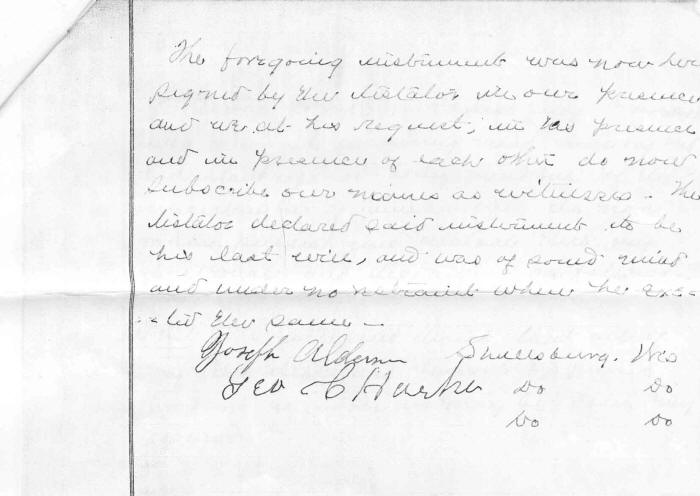 The foregoing instrument was now here
signed by the testator in our presence
and we at his request, in his presence
and in presence of each other do now
subscribe our names as witnesses. The
testator declared said instrument to be
his last will, and was of sound mind
and under no restraint when he exe-
the same —
Joseph Alderson Shullsburg. Wis
Geo C Do Do
Do Do